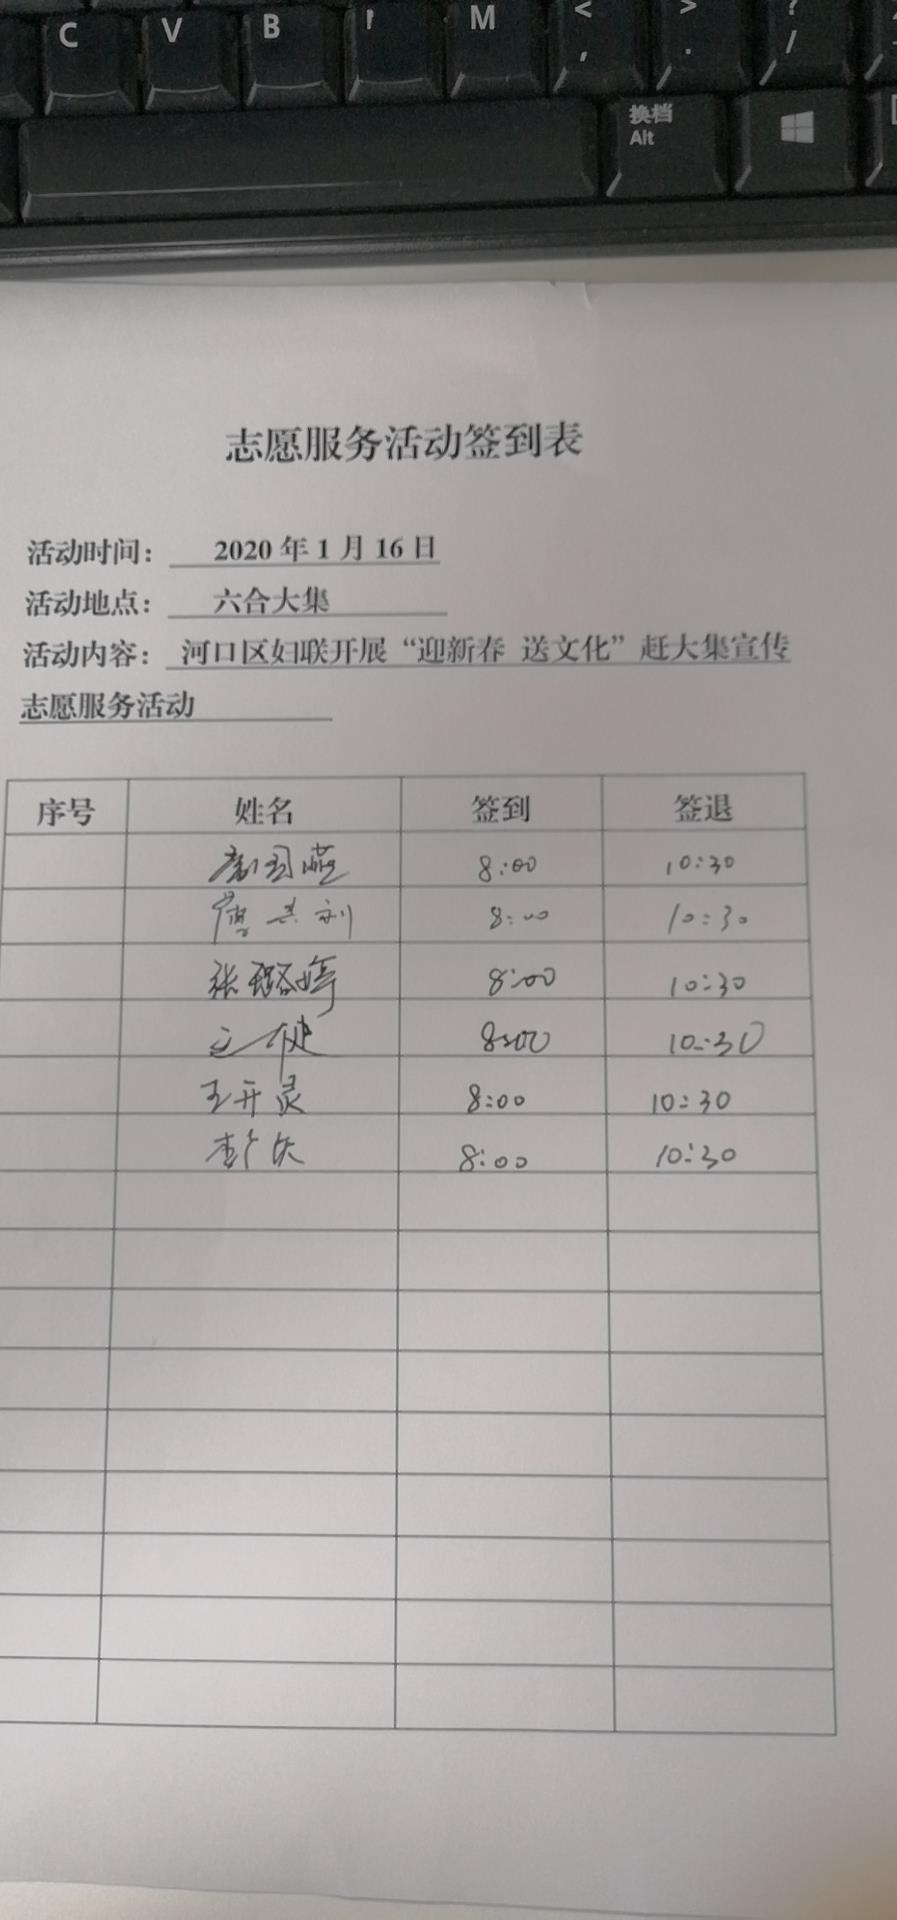 C V B M < >
, . ? /
换档
Alt
志愿服务活动签到表
活动时间： 2020 年 1 月 16 日
活动地点： 六合大集
活动内容： 河口区妇联开展“迎新春 送文化”赶大集宣传
志愿服务活动
序号 姓名 签到 签退
8:00 10:30
8:00 10:30
张璐婷 8:00 10:30
8:00 10:30
王开灵 8:00 10:30
8:00 10:30